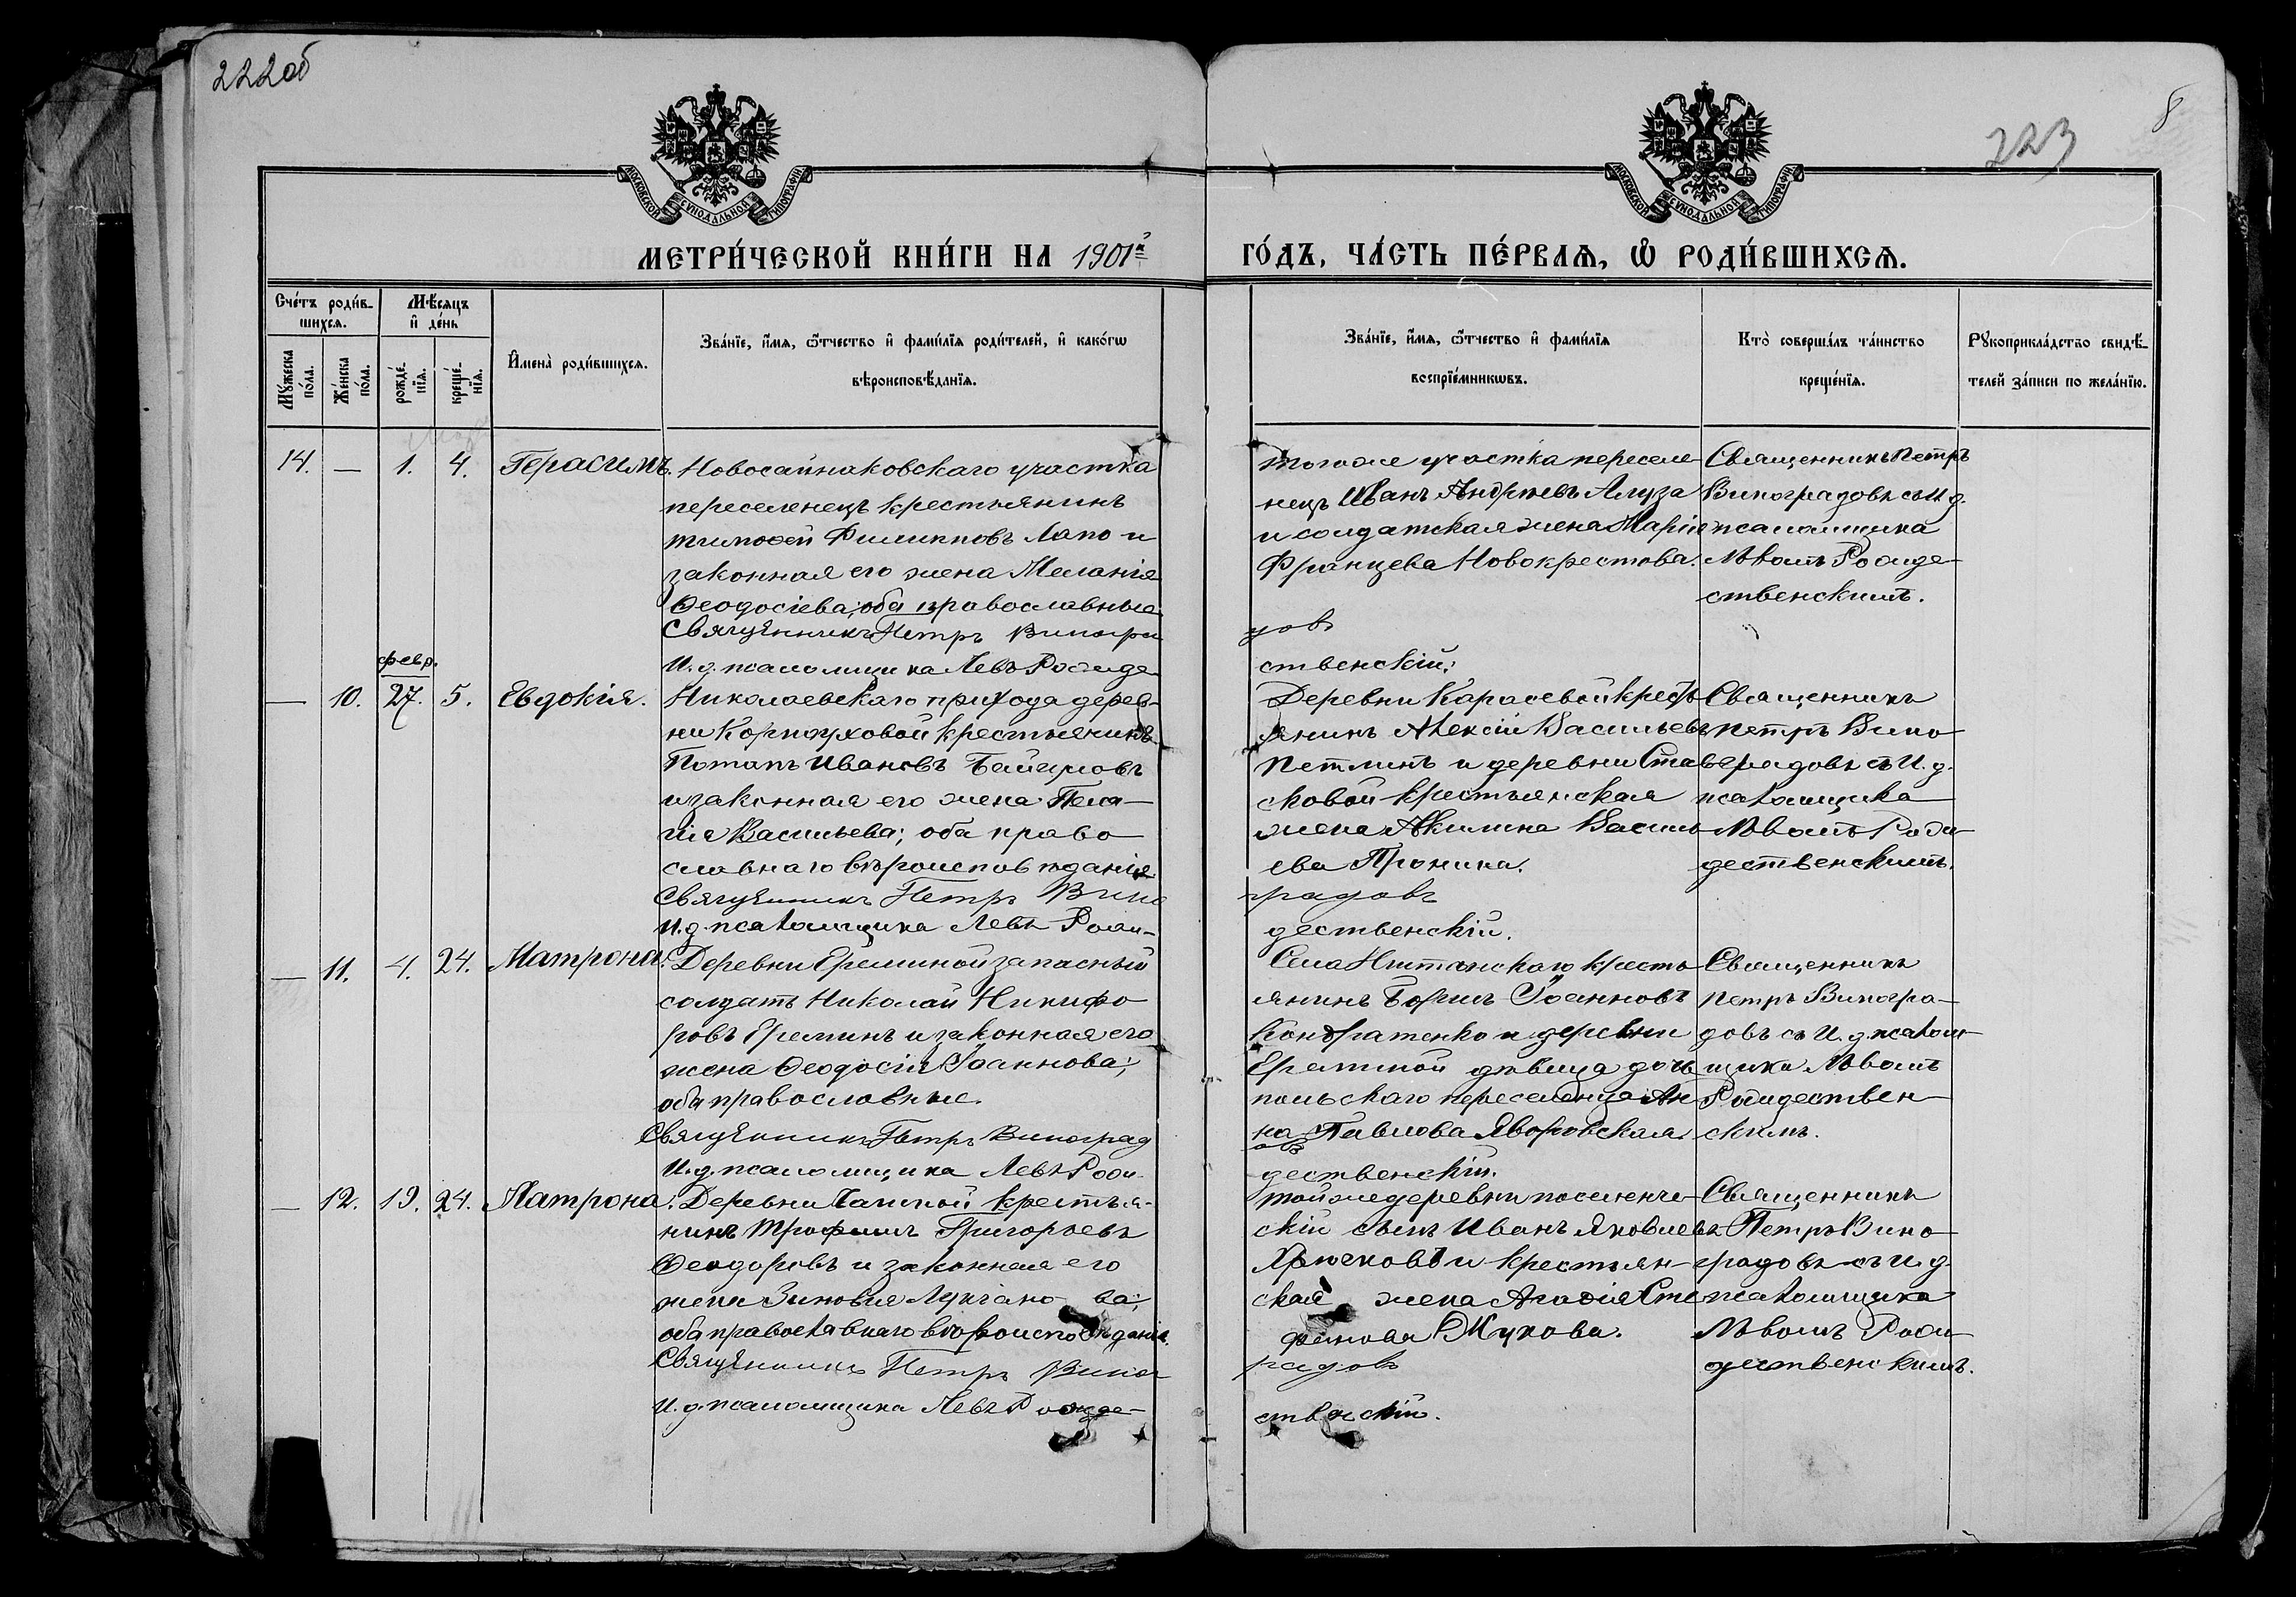 222об
223
8
МОСКОВСКОЙ СѴНОДАЛЬНОЙ ТИПОГРАФІИ
МОСКОВСКОЙ СѴНОДАЛЬНОЙ ТИПОГРАФІИ
МЕТРИ́ЧЕСКОЙ КНИ́ГИ НА 1901й
ГО́ДЪ, ЧА́СТЬ ПЕ́РВАѦ, Ѡ РОДИ́ВШИХСѦ.
Сче́тъ роди́в-
шихсѧ.
Мѣ́сѧцъ
и де́нь
Мꙋ́жеска
по́ла.
Же́нска
по́ла.
рожде́-
нїѧ.
креще́-
нїѧ.
Имена̀ роди́вшихсѧ.
Зва́нїе, и́мѧ, ѻ́тчество и фами́лїѧ роди́телей, и како́гѡ
вѣроисповѣ́данїѧ.
Зва́нїе, и́мѧ, ѻ́тчество и фами́лїѧ
воспрїе́мникѡвъ.
Кто̀ соверша́лъ та́инство
креще́нїѧ.
Рꙋкоприкла́дство свидѣ́-
телей за́писи по жела́нїю.
14. — 1. 4. Герасимъ.
Новосайнаковскаго участка
переселенецъ крестьянинъ
Тимофей Филипповъ Лапо и
законная его жена Меланія
Ѳеодосіева; оба православные
Священникъ Петръ Виногра
И.д. псаломщика Левъ Рожде
тогоже участка переселе-
нецъ Иванъ Андреевъ Алуза
и солдатская жена Марія
Францева Новокрестова.
довъ
ственскій.
Священникъ Петръ
Виноградовъ съ И.д.
псаломщика
Львомъ Рожде-
ственскимъ.
февр.
— 10. 27. 5. Евдокія.
Николаевскаго прихода дерев-
ни Корнауховой крестьянинъ
Потапъ Ивановъ
и законная его жена Пела-
гія Васильева; оба право
славнаго вѣроисповѣданія
Священникъ Петръ Вино
И.д. псаломщика Левъ Рож-
Деревни Карасевой кресть
янинъ Алексій Васильевъ
Петлинъ и деревни Став
сковой крестьянская
жена Акилина Василь
ева Пронина.
градовъ
дественскій.
Священникъ
Петръ Вино-
градовъ съ И.д.
псаломщика
Львомъ Рож-
дественскимъ.
— 11. 4. 24. Матрона.
Деревни Ереминой запасный
солдатъ Николай Никифо
ровъ Ереминъ и законная его
жена Ѳеодосія Іоаннова;
оба православные.
Священникъ Петръ Виноград
И.д. псаломщика Левъ Рож.
Села кресть
янинъ Борисъ Іоанновъ
Кондратенко и деревни
Ереминой дѣвица дочь
польскаго переселенца Ан
на Павлова Яворовская.
овъ
дественскій.
Священникъ
Петръ Виногра-
довъ съ И.д. псалом-
щика Львомъ
Рождествен-
скимъ.
— 12. 19. 24. Матрона.
Деревни крестья-
нинъ Трофимъ Григорьевъ
Ѳеодоровъ и законная его
жена Зиновія Лукіано ва;
оба православнаго вѣроисповѣданія.
Священникъ Петръ Виног
И.д. псаломщика Левъ Рожде-
тойже деревни поселенче-
скій сынъ Иванъ Яковлевъ
Крючковъ и крестьян-
ская жена Агафія Сте
фанова Жукова.
радовъ
ственскій.
Священникъ
Петръ Вино-
градовъ съ И.д.
псаломщика
Львомъ Рож-
дественскимъ.